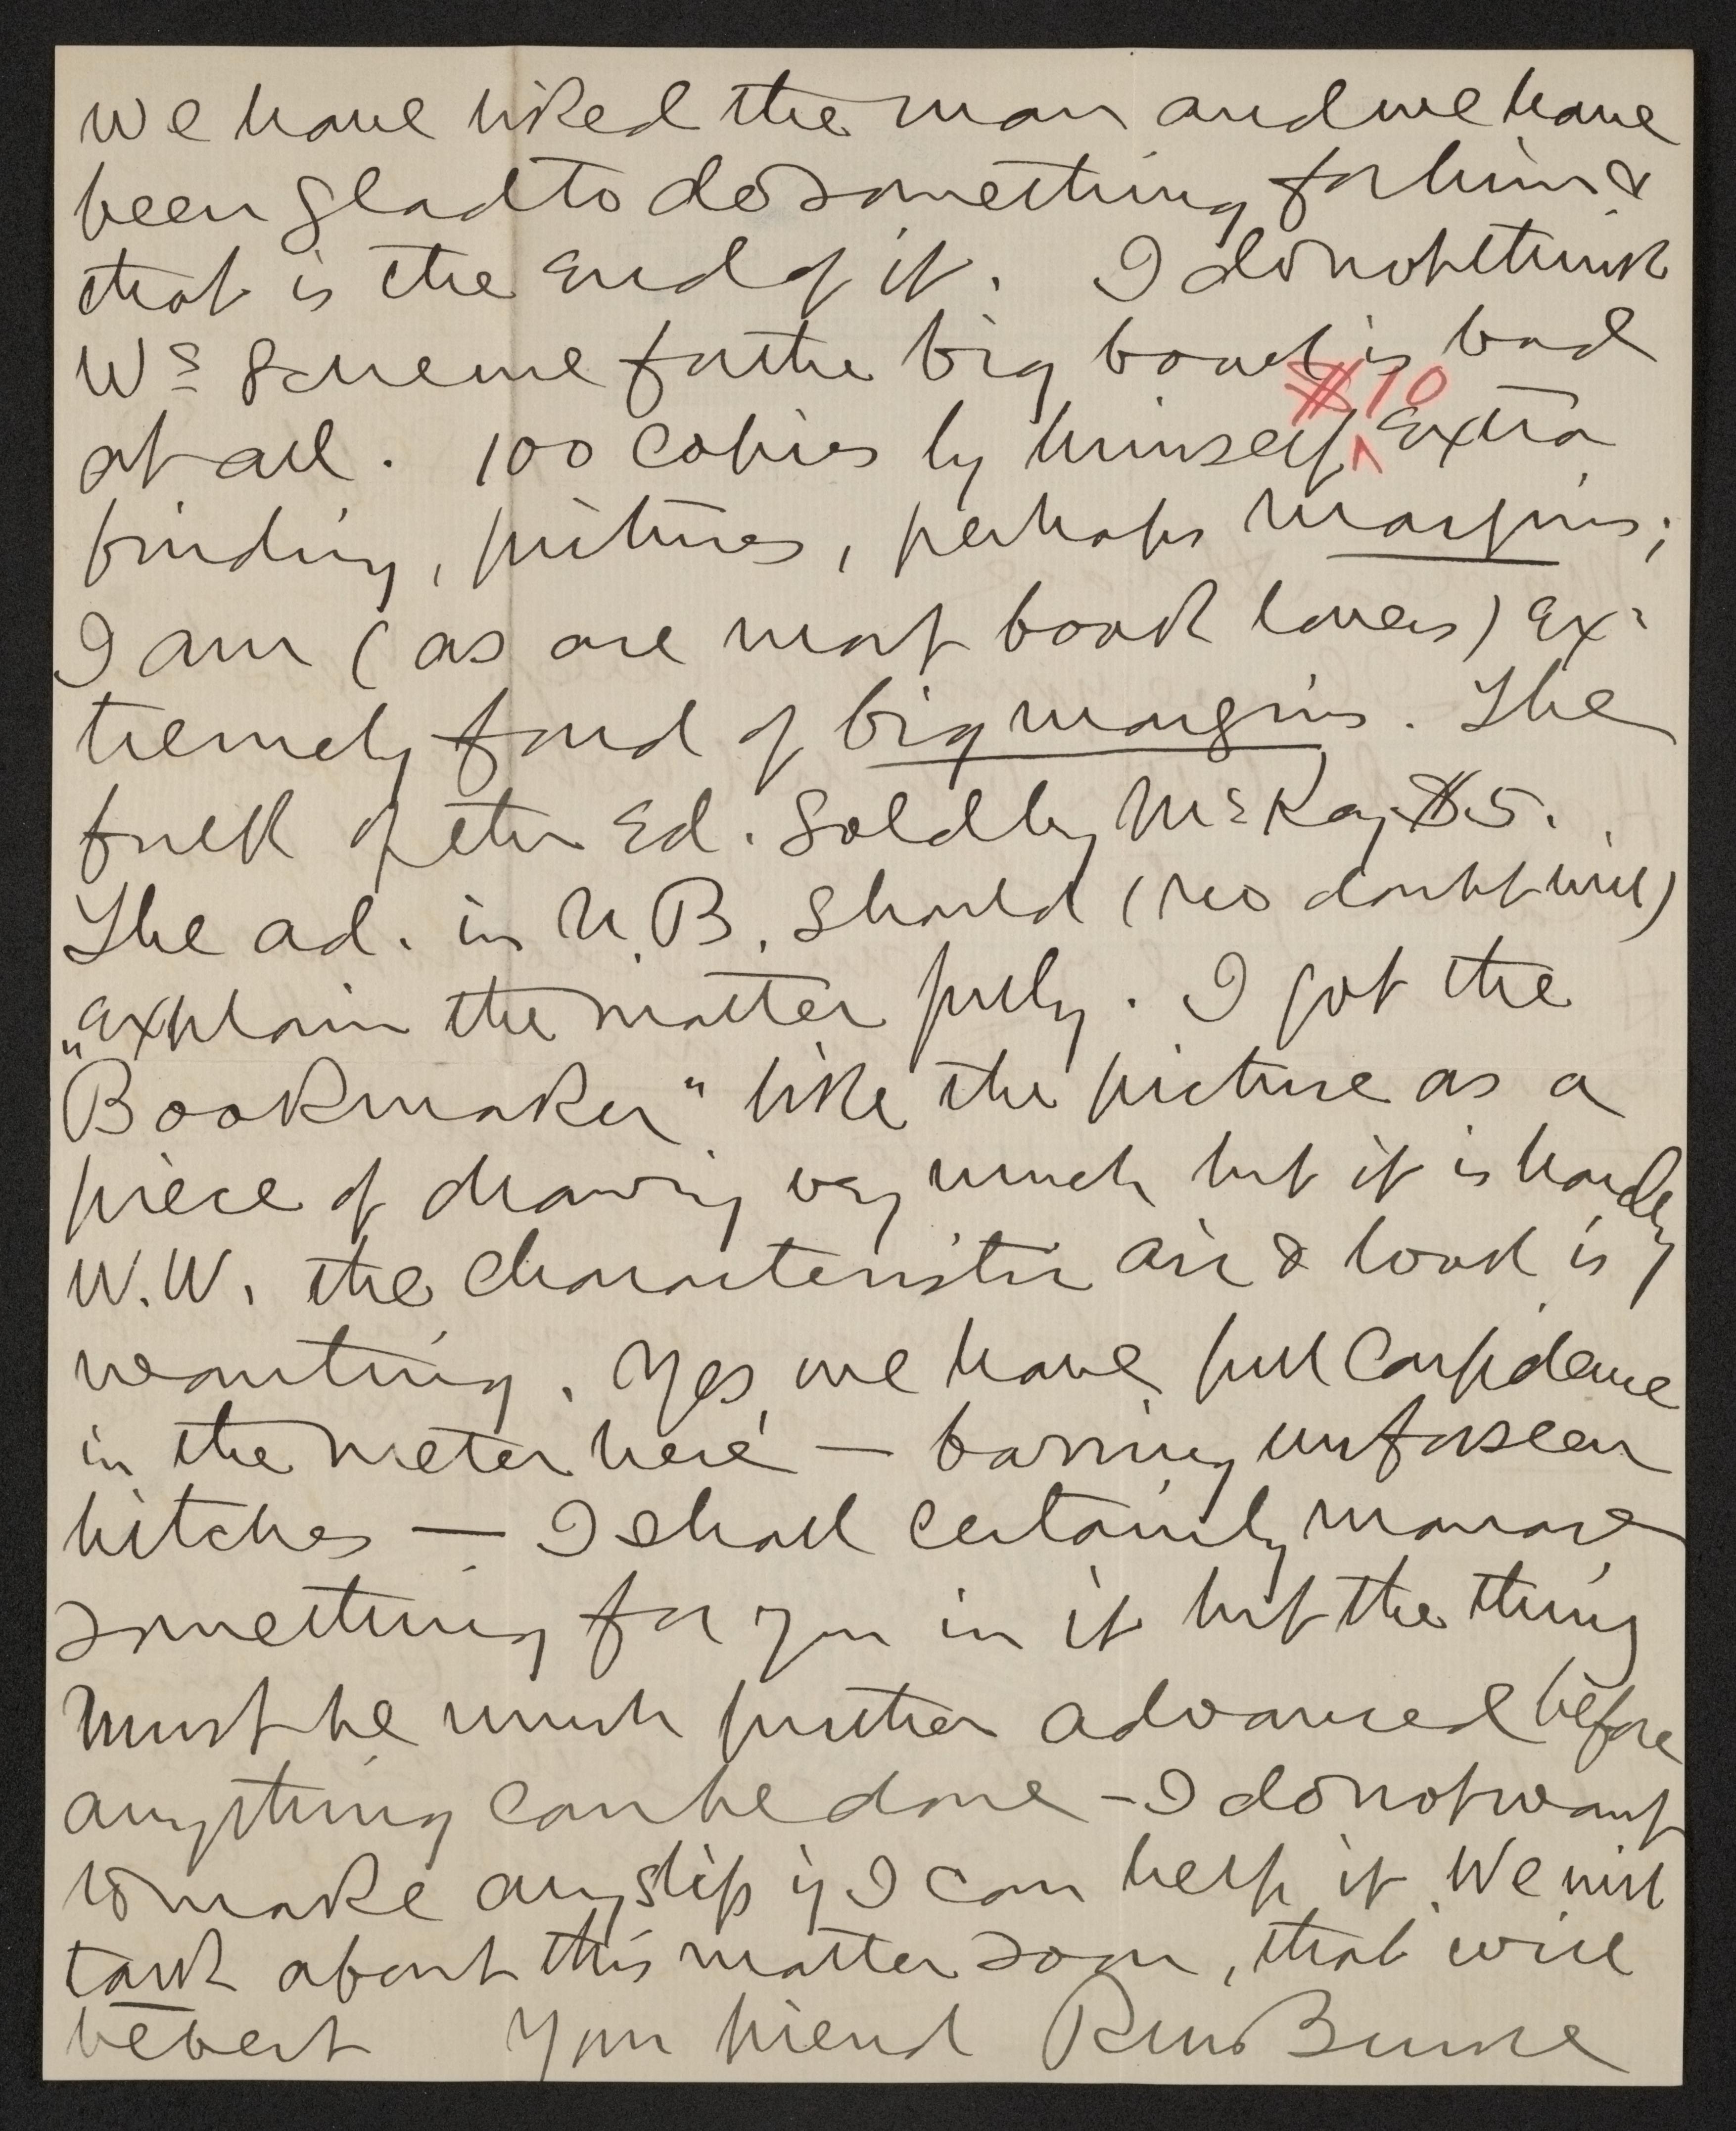 We have liked the man and we have
been glad to do something for him &
that is the end of it. I do not think
Ws scheme for the big book is bad
$10
at all. 100 copies by himself ^ Extra
binding, pictures, perhaps margins;
I am (as are most book lovers) Ex-
tremely fond of big margins. The
bulk of the Ed. sold by McKay $5.
The ad. in N.B. should (no doubt will)
explain the matter fully. I got the
"Bookmaker" like the picture as a
piece of drawing very much but it is hardly
W.W. the characteristic air & look is
wanting. Yes, we have full confidence
in the meter here — barring unforseen
hitches — I shall certainly manage
something for you in it but the thing
must be much further advanced before
anything can be done — I do not want
to make any slips if I can help it. We will
talk about this matter soon, that will
be best Your friend RM Bucke